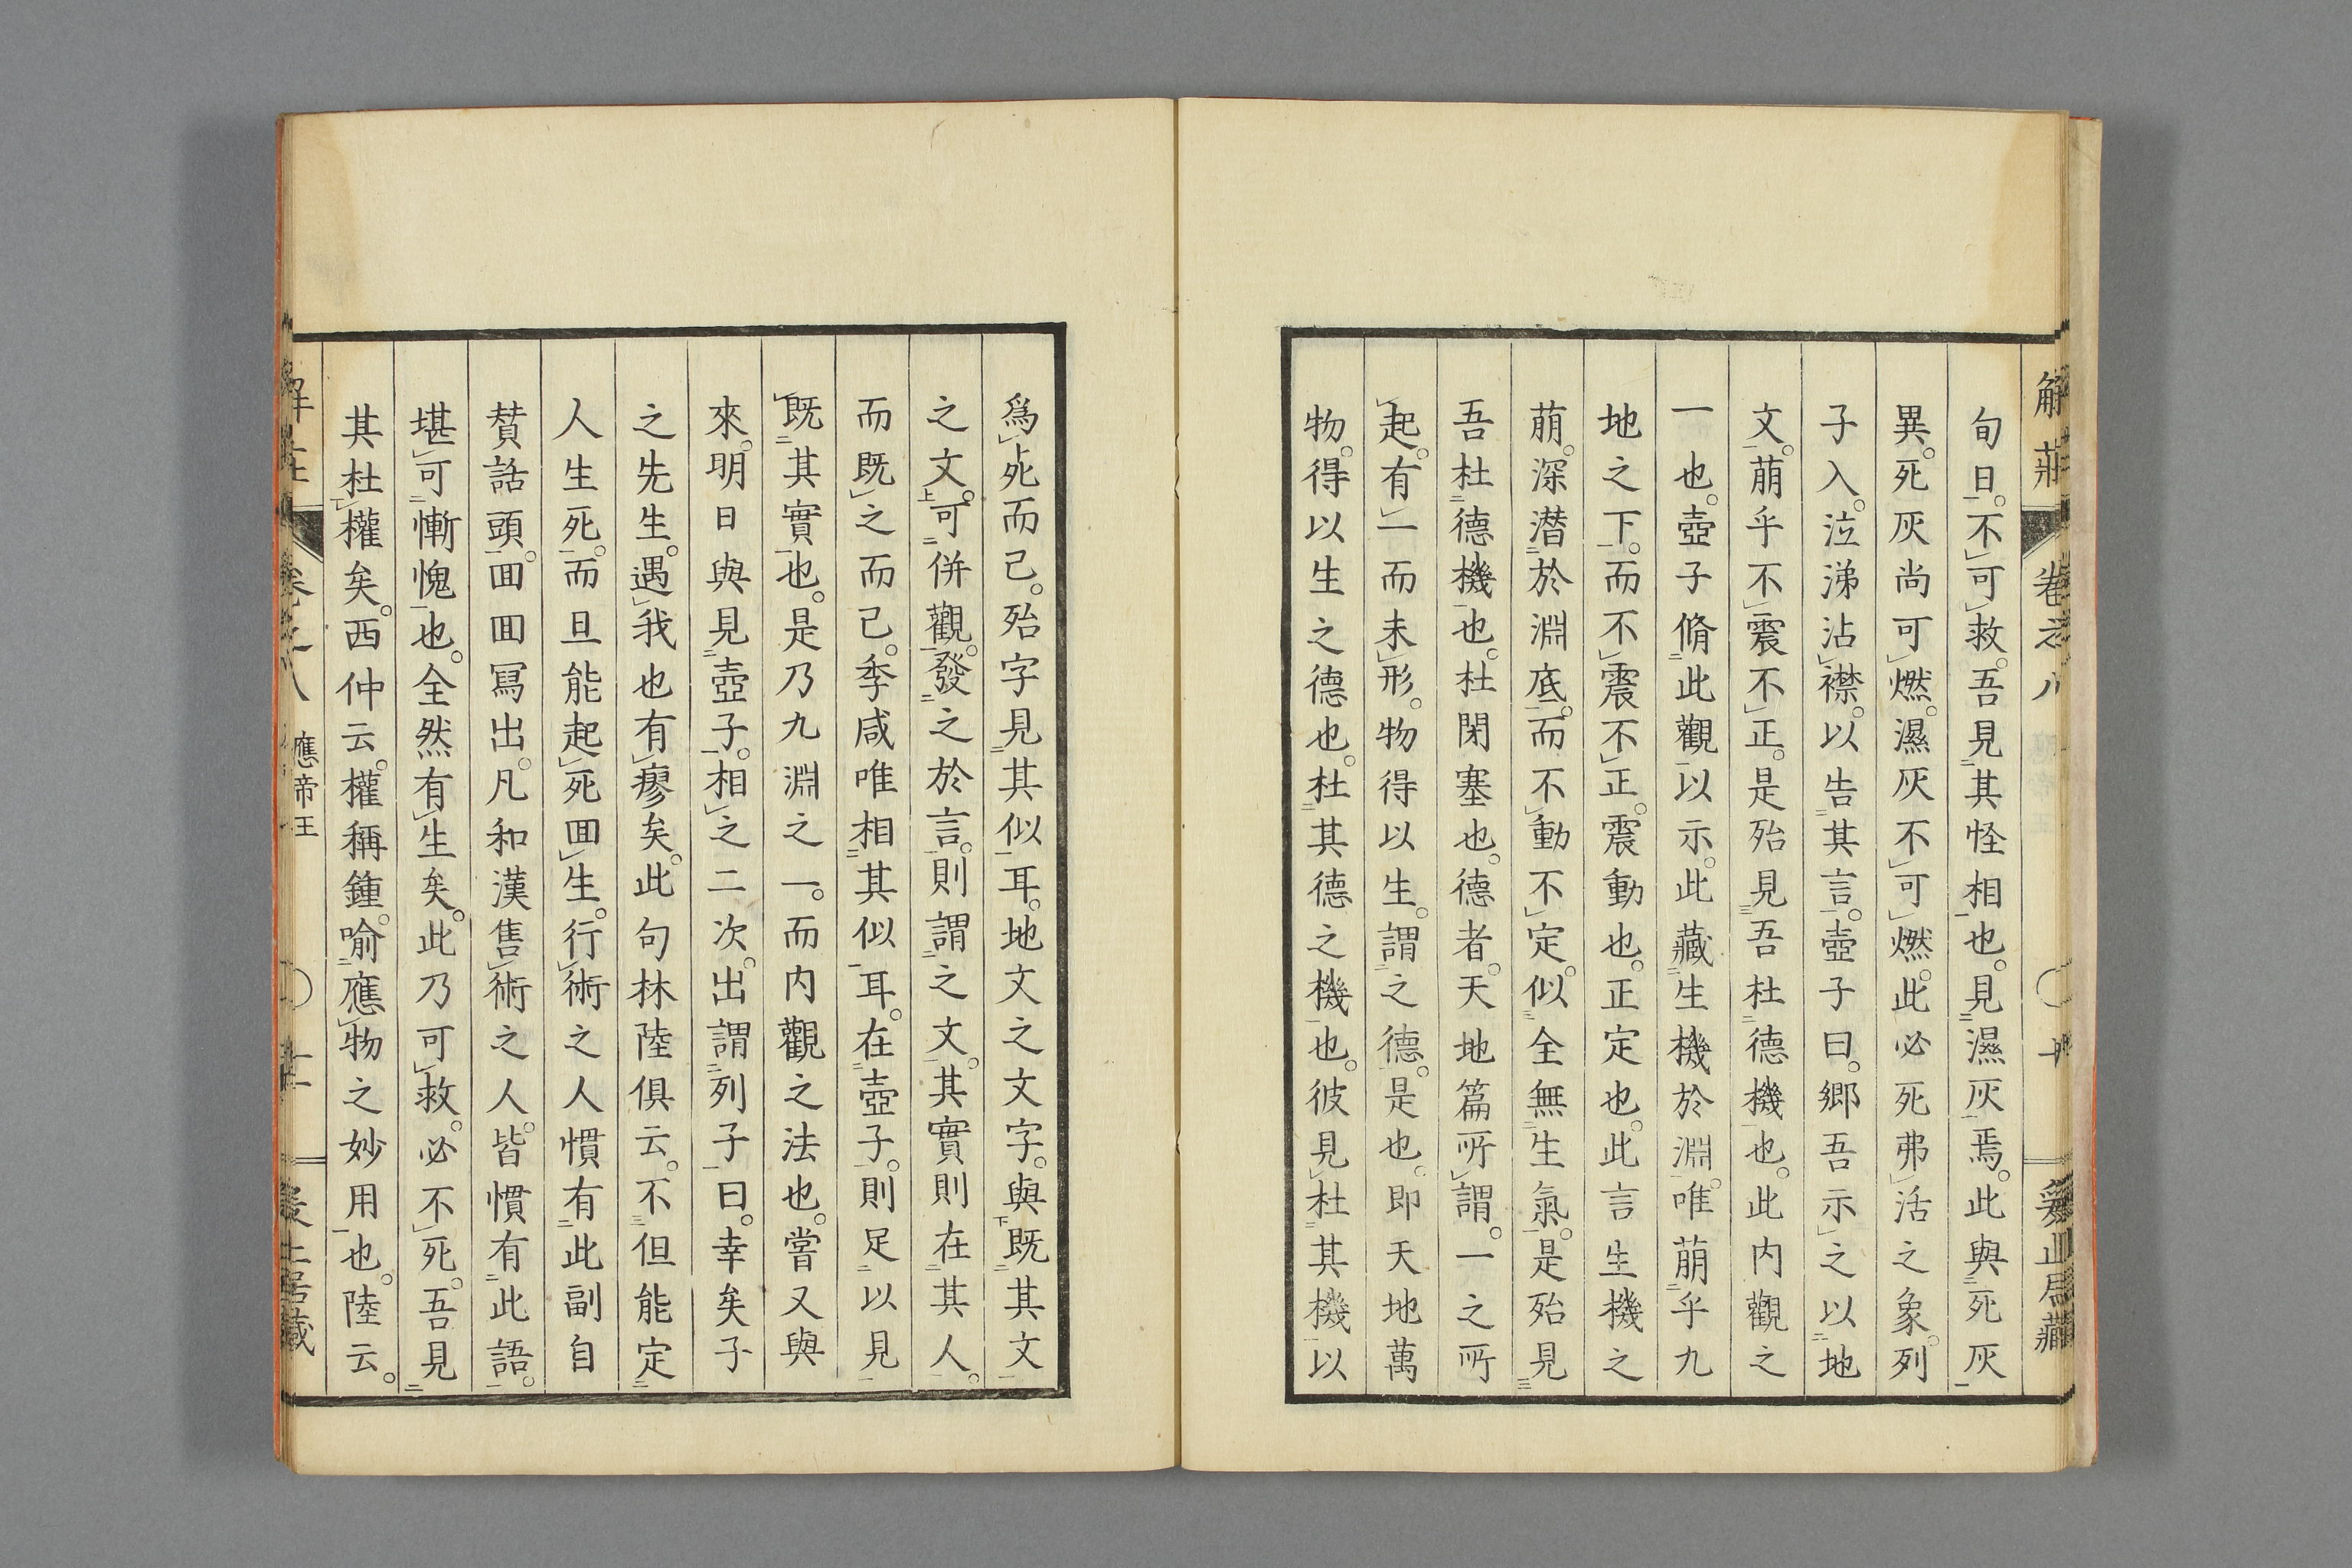 解莊 卷之八
旬日。不可救。吾見其怪相也。見濕灰焉。此與死灰
異。死灰尚可燃。濕灰不可燃。此必死弗活之象。列
子入。泣涕沾襟。以告其言。壺子曰。鄉吾示之以地
文。萠乎不震不正。是殆見吾杜德機也。此内觀之
一也。壺子脩此觀以示。此藏生機於淵。唯萠乎九
地之下。而不震不正。震動也。正定也。此言生機之
萠。深潛於淵底。而不動不定。似全無生氣。是殆見
吾杜德機也。杜閉塞也。德者。天地篇所謂。一之所
起。有一而未形。物得以生。謂之德。是也。即天地萬
物。得以生之德也。杜其德之機也。彼見杜其機以
爲死而已。殆字見其似耳。地文之文字。與既其文
之文。可併觀。發之於言。則謂之文。其實則在其人。
而既之而已。季咸唯相其似耳。在壺子。則足以見
既其實也。是乃九淵之一。而内觀之法也。嘗又與
來。明日與見壺子。相之二次。出謂列子曰。幸矣子
之先生。遇我也有瘳矣。此句林陸俱云。不但能定
人生死。而且能起死回生。行術之人慣有此副自
賛話頭。囬囬冩出。凡和漢售術之人。皆慣有此語。
堪可慚愧也。全然有生矣。此乃可救。必不死。吾見
其杜權矣。西仲云。權稱鍾。喻應物之妙用也。陸云。
應帝王